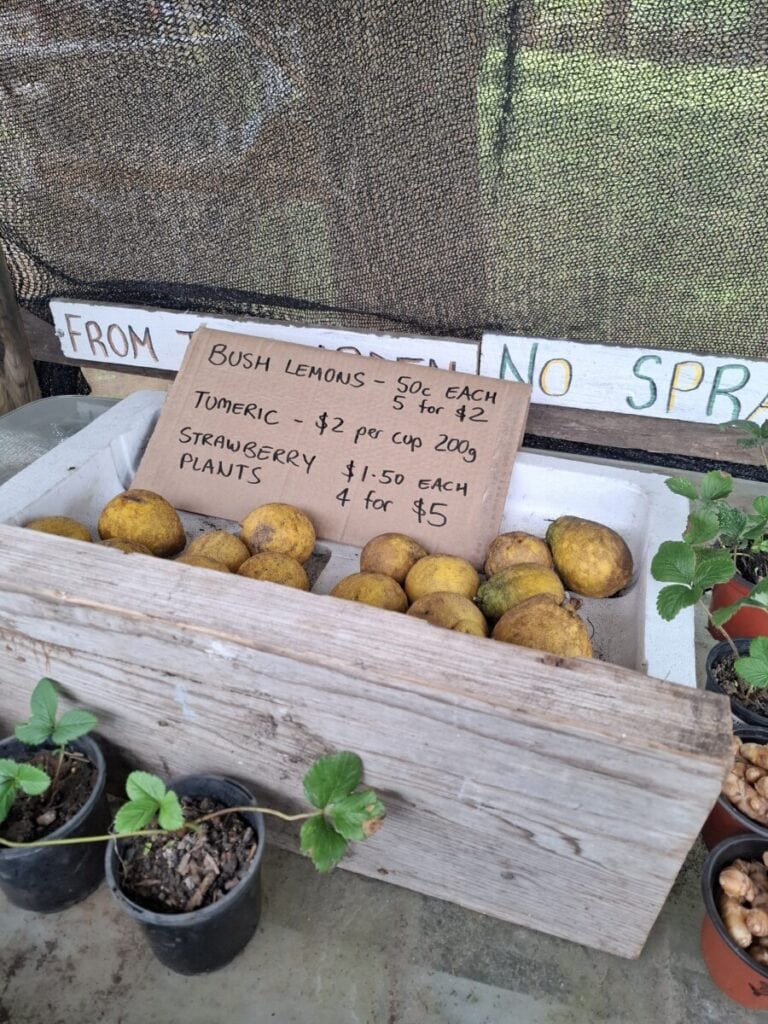 FROM
NO SPRA
BUSH LEMONS - 50c EACH
5 for $2
TUMERIC - $2 per cup 200g
STRAWBERRY $1.50 EACH
PLANTS 4 for $5